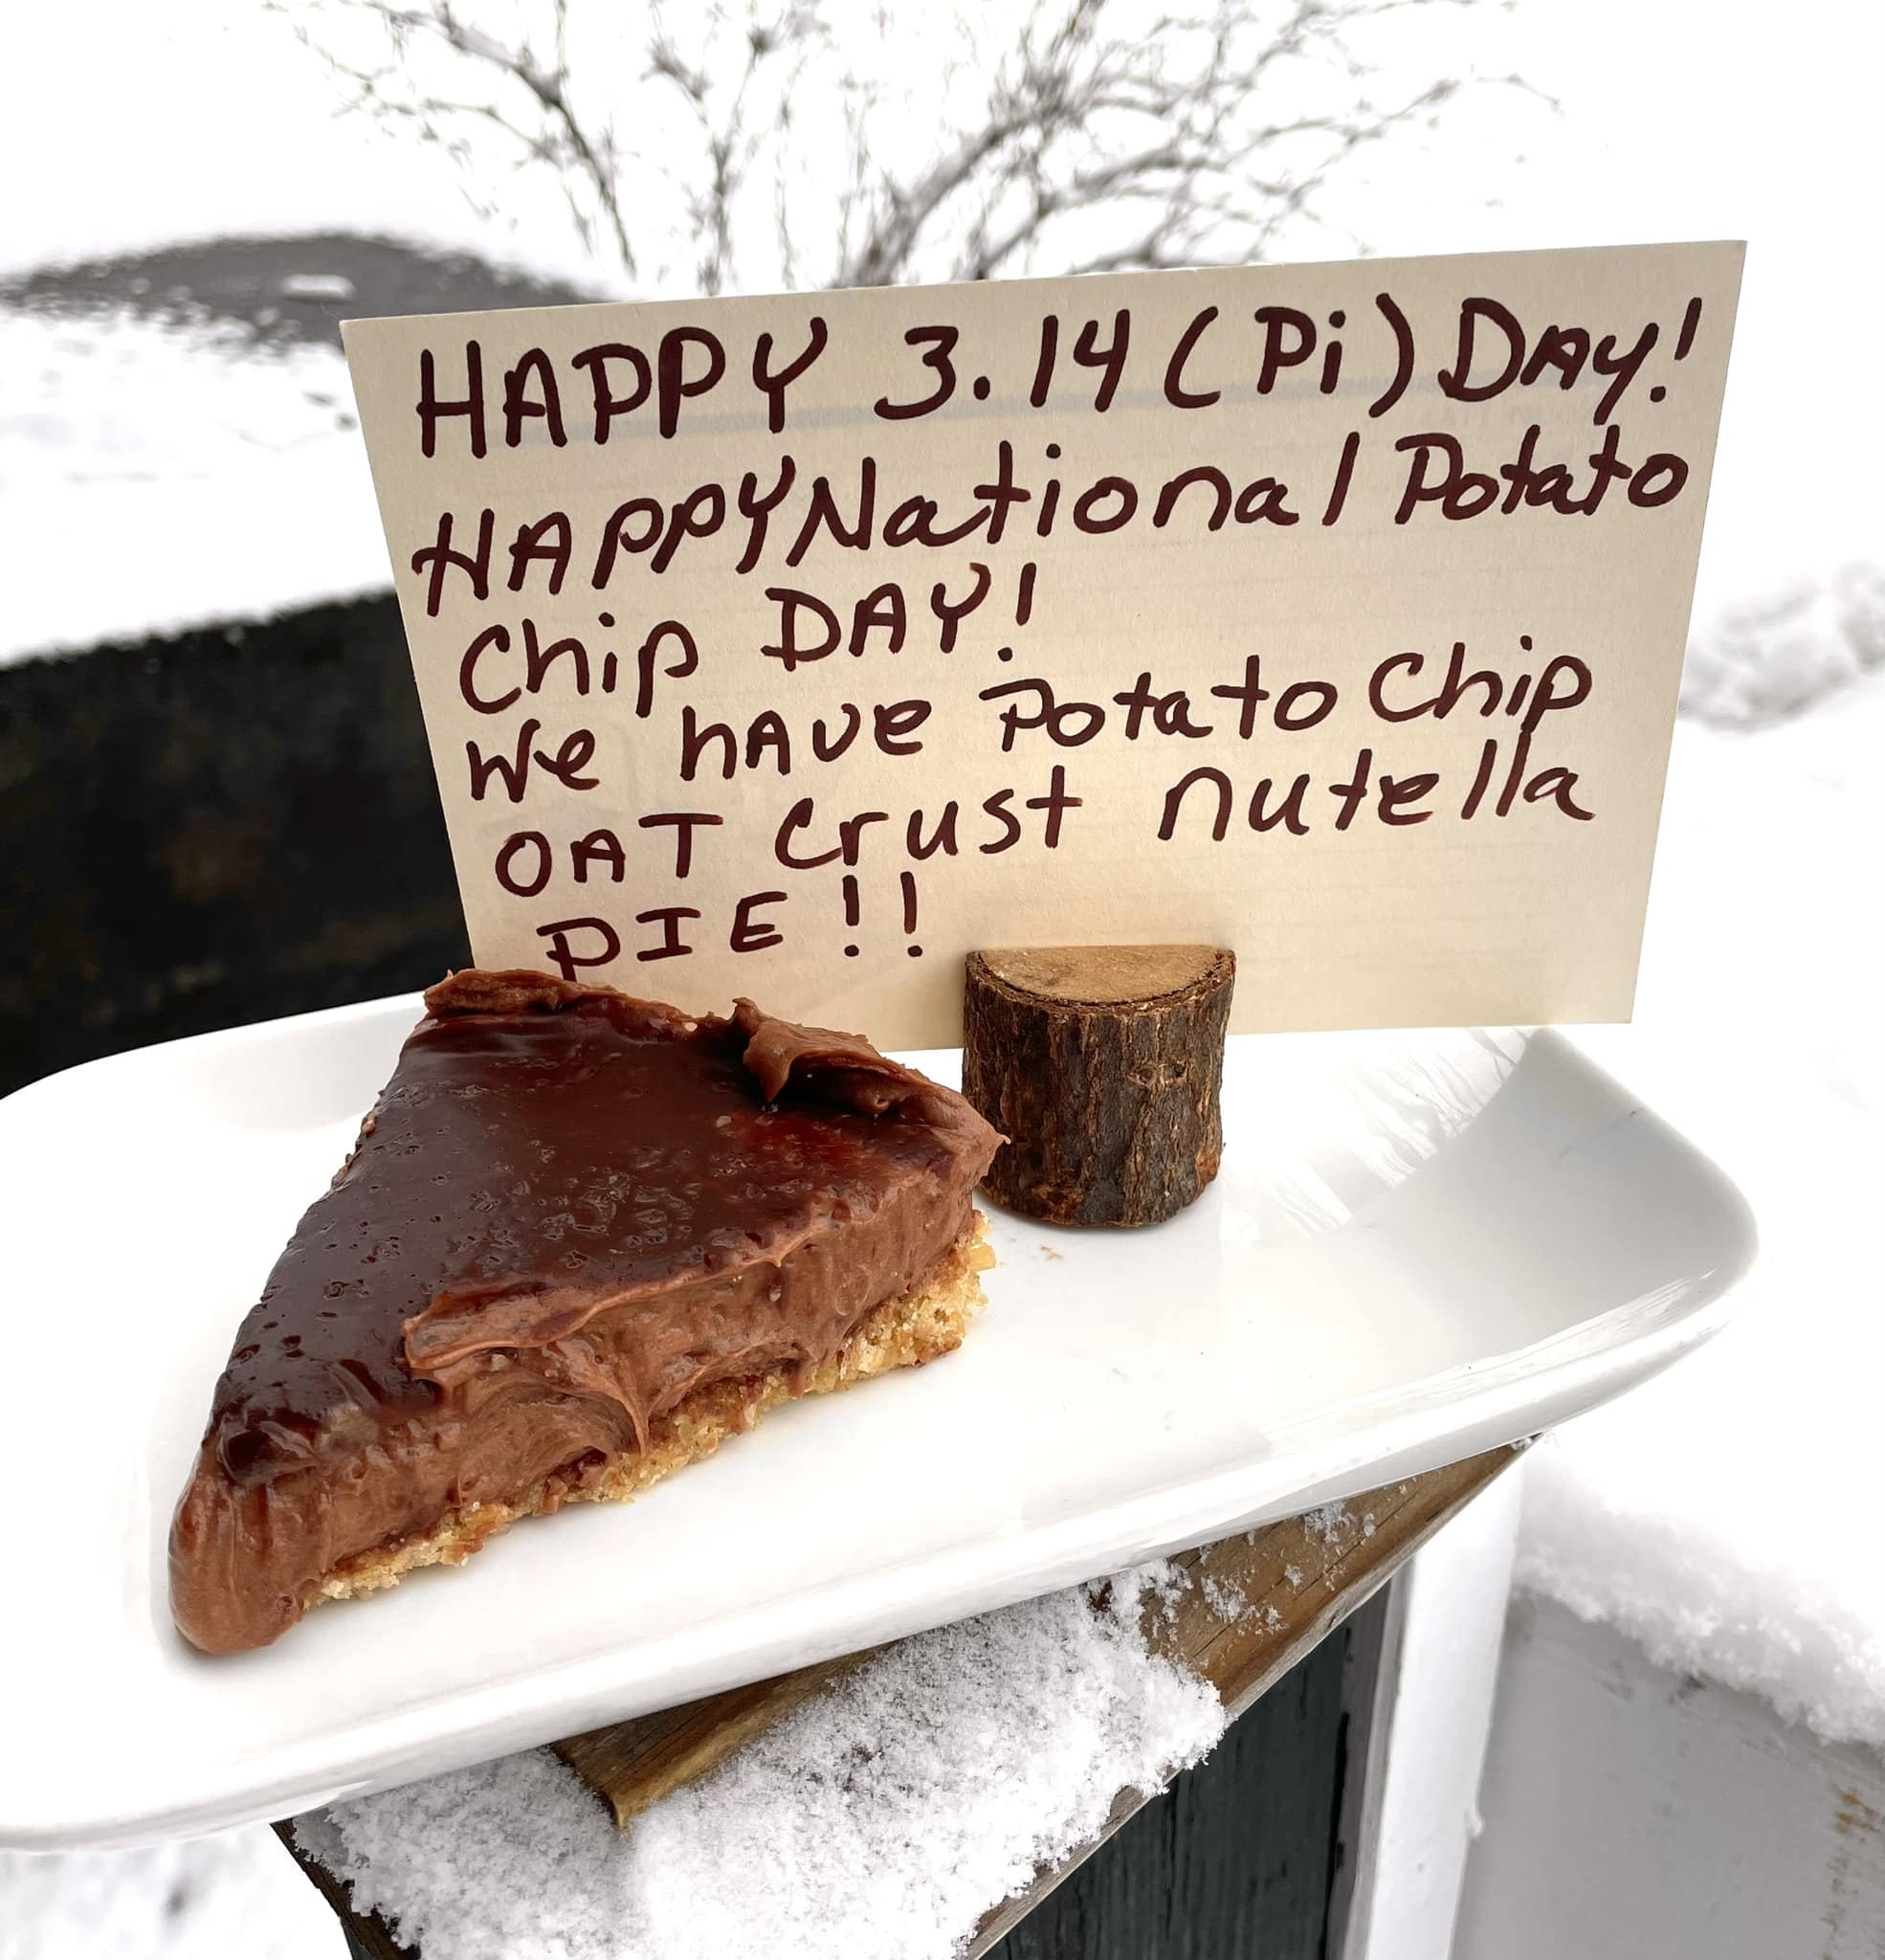 HAPPY 3.14 (Pi) DAY!
HAPPY National Potato
Chip DAY!
We hAve Potato Chip
OAT Crust nutella
PIE!!